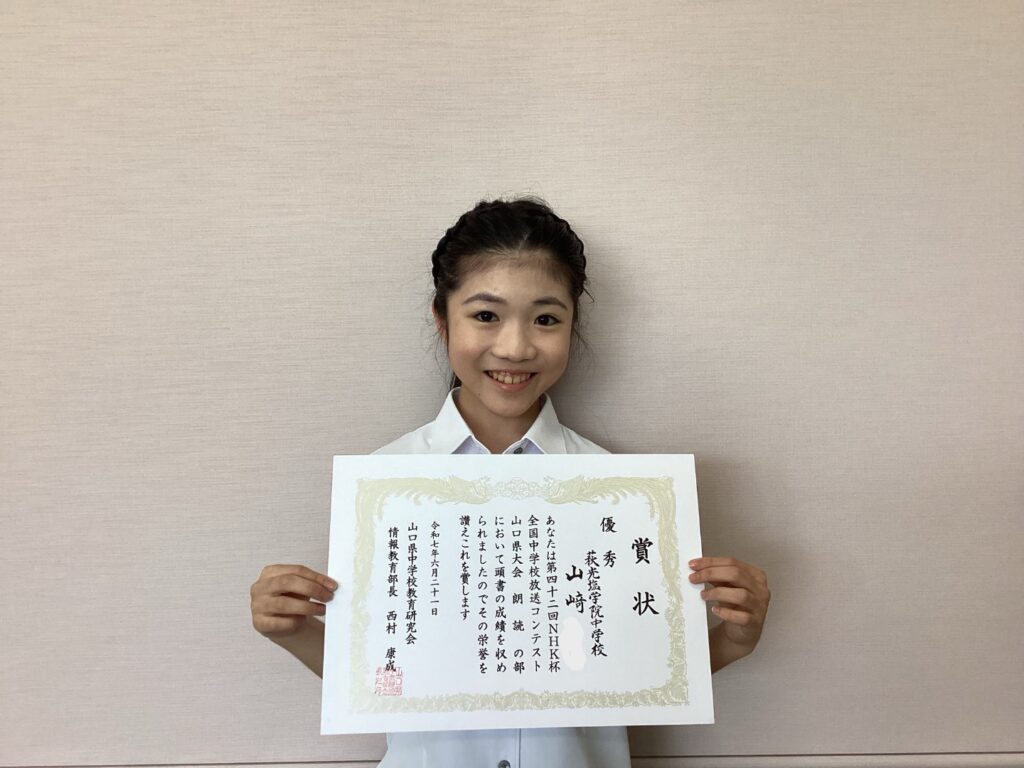 賞状
優秀
萩光塩学院中学校
山﨑
あなたは第四十二回NHK杯
全国中学校放送コンテスト
山口県大会 朗読の部
において頭書の成績を収め
られましたのでその栄誉を
讃えこれを賞します
令和七年六月二十一日
山口県中学校教育研究会
情報教育部長 西村 康成